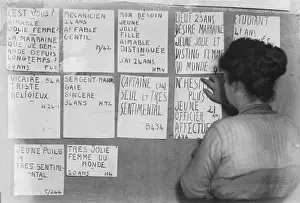 C'EST VOUS?
AIMABLE
JOLIE FEMME
LA MARRAINE
QUE JE DE-
MANDE DEPUIS
LONGTEMPS?
24 ANS
MECANICIEN
24 ANS
AFFABLE
GENTIL
M/42
MON BESOIN
JEUNE
JOLIE
FILLE
AIMABLE
DISTINGUÉE
J'AI 24 ANS
H
DEUT 23 ANS
DÉSIRE MARRAINE
JEUNE JOLIE ET
DISTING FEMME
DU MONDE
ETUDIANT
21 ANS
VICAIRE 34
TRISTE
RELIGIEUX.
SERGENT MAJOR
GAIE
SINCERE
34 ANS
CAPTAINE
SEUL ET TRES
SENTIMENTAL
B434
N'HESI
PLUS
JEUNE 21
OFFICIER
AFFECTU
JEUNE POILU
TRES SENTIME-
NTAL
C/244
TRES JOLIE
FEMME DU
MONDE
20 ANS